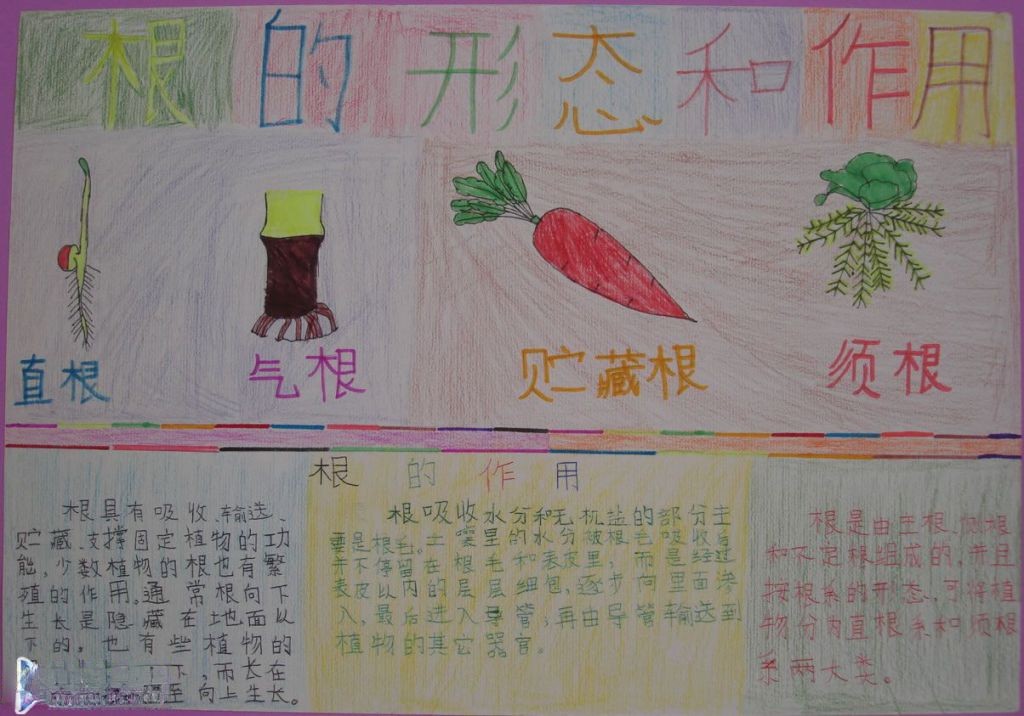 根的形态和作用
直根
气根
贮藏根
须根
根的作用
根具有吸收、输送、
贮藏、支撑固定植物的功
能,少数植物的根也有繁
殖的作用。通常根向下
生长是隐藏在地面以
下的。也有些植物的
下,而长在
至向上生长。
根吸收水分和无机盐的部分主
要是根毛。土壤里的水分被根毛吸收后
并不停留在根毛和表皮里,而是经过
表皮以内的层层细包,逐步向里面渗
入,最后进入导管;再由导管输送到
植物的其它器官。
根是由主根、侧根
和不定根组成的,并且
按根系的形态,可将植
物分为直根系和须根
系两大类。